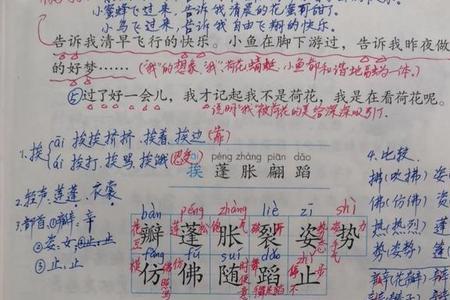 小蜜蜂飞过来,告诉我清晨的花蜜
小鸟飞过来,告诉我自由飞翔的快乐。
告诉我清早飞行的快乐。小鱼在脚下游过,告诉我昨夜做
的好梦……("我"的想象"我"、荷花、蜻蜓、小鱼都和谐地融为一体。)
⑤过了好一会儿,我才记起我不是荷花,我是在看荷花呢。
说明"我"被荷花的美给深深吸引了.
1.挨 āi 挨挨挤挤、挨着、挨边(靠)
ái 挨打、挨骂、挨饿
péng zhàng piān dǎo
挨 蓬 胀 翩 蹈
2.轻声:莲蓬、衣裳
3.部首:①瓣:辛
②姿:女 ④止:止
③止:止
bàn péng zhàng liè zī shì
瓣 蓬 胀 裂 姿 势
fǎng fú suí dǎo
仿 佛 随 蹈 止
4.比较
拂(吹拂) 姿
佛(仿佛) 资
热(热烈)
势(姿势)
瓣(花瓣)